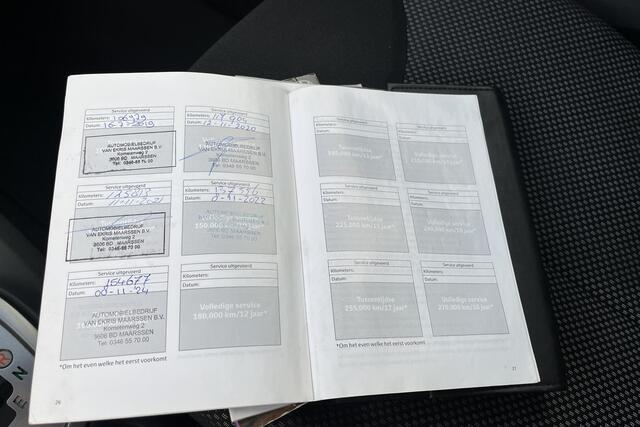 Service uitgevoerd
Kilometers: 106979
Datum: 16-7-2019
AUTOMOBIELBEDRIJF
VAN EKRIS MAARSSEN B.V.
Kometenweg 2
3606 BD MAARSSEN
Tel: 0346 55 70 00
Service uitgevoerd
Kilometers:
Datum: 12-11-2020
AUTOMOBIELBEDRIJF
VAN EKRIS MAARSSEN B.V.
Kometenweg 2
3606 BD MAARSSEN
Tel: 0346 55 70 00
Service uitgevoerd
Kilometers:
Datum: 11-11-2021
AUTOMOBIELBEDRIJF
VAN EKRIS MAARSSEN B.V.
Kometenweg 2
3606 BD MAARSSEN
Tel: 0346 55 70 00
Service uitgevoerd
Kilometers:
Datum:
150.000 km/10 jaar*
Service uitgevoerd
Kilometers: 154677
Datum: 00-11-24
AUTOMOBIELBEDRIJF
VAN EKRIS MAARSSEN B.V.
Kometenweg 2
3606 BD MAARSSEN
Tel: 0346 55 70 00
Service uitgevoerd
Kilometers:
Datum:
Volledige service
180.000 km/12 jaar*
*Om het even welke het eerst voorkomt
26
Service uitgevoerd
Kilometers:
Datum:
Tussentijdse
195.000 km/13 jaar*
Service uitgevoerd
Kilometers:
Datum:
Volledige service
210.000 km/14 jaar*
Service uitgevoerd
Kilometers:
Datum:
Tussentijdse
225.000 km/15 jaar*
Service uitgevoerd
Kilometers:
Datum:
Volledige service
240.000 km/16 jaar*
Service uitgevoerd
Kilometers:
Datum:
Tussentijdse
255.000 km/17 jaar*
Service uitgevoerd
Kilometers:
Datum:
Volledige service
270.000 km/18 jaar*
*Om het even welke het eerst voorkomt
27
R
N